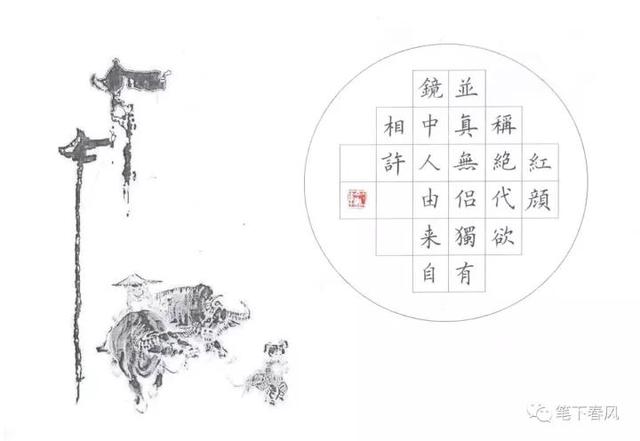 紅顔
稱絕代欲
並真無侶獨有
鏡中人由来自
相許
笔下春风